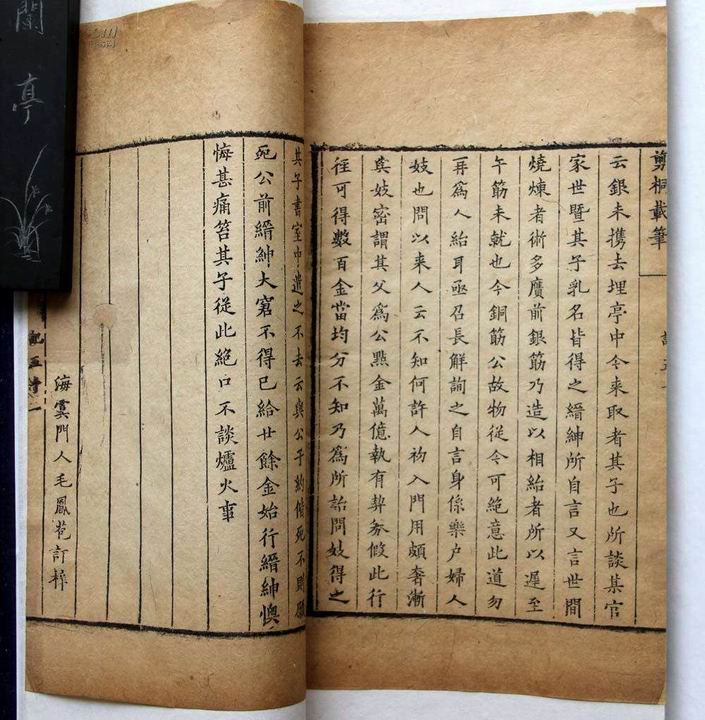 剪桐載筆
云銀未携去埋亭中令來取者其子也所談某官
家世暨其子乳名皆得之縉紳所自言又言世間
燒煉者術多贋前銀筋乃造以相紿者所以遲至
午筋未就也今銅筋公故物從今可絶意此道勿
再為人紿耳亟召長解詢之自言身係樂户婦人
妓也問以來人云不知何許人初入門用頗奢漸
與妓密謂其父為公點金萬億執有契券假此行
徑可得數百金當均分不知乃為所詒問妓得之
其子書室中遣之不去云與公子約偕死不則願
死公前縉紳大窘不得已給廿餘金始行縉紳懊
悔甚痛笞其子從此絶口不談爐火事
海虞門人毛鳳苞訂梓
蘭亭